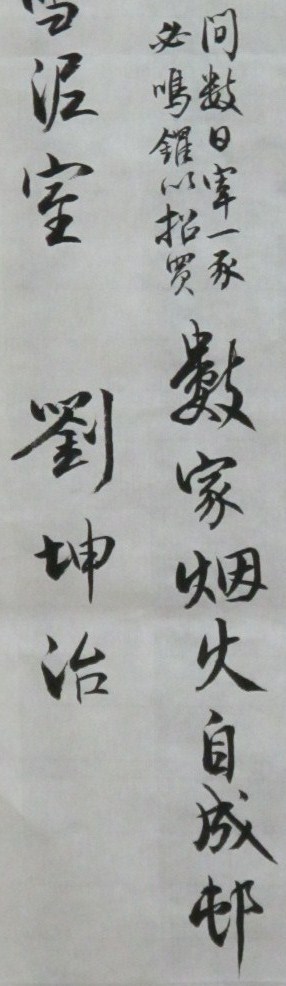 間數日宰一豕
必鳴鑼以招買
數家烟火自成邨
雪泥室 劉坤治